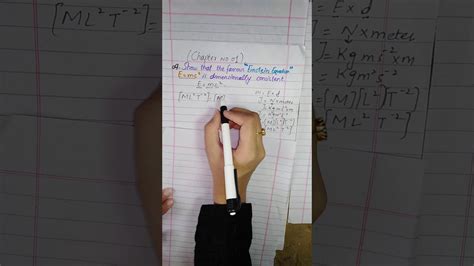 (Chapter no 01)
Q1. Show that the famous "Einstein Equation"
E=mc² is dimensionally consistent.
E = mc²
[ML²T⁻²] = [M]
J = N x meter
J = Kgm s⁻² x m
J = Kg m² s⁻²
= [M][L²][T⁻²]
[ML²T⁻²]